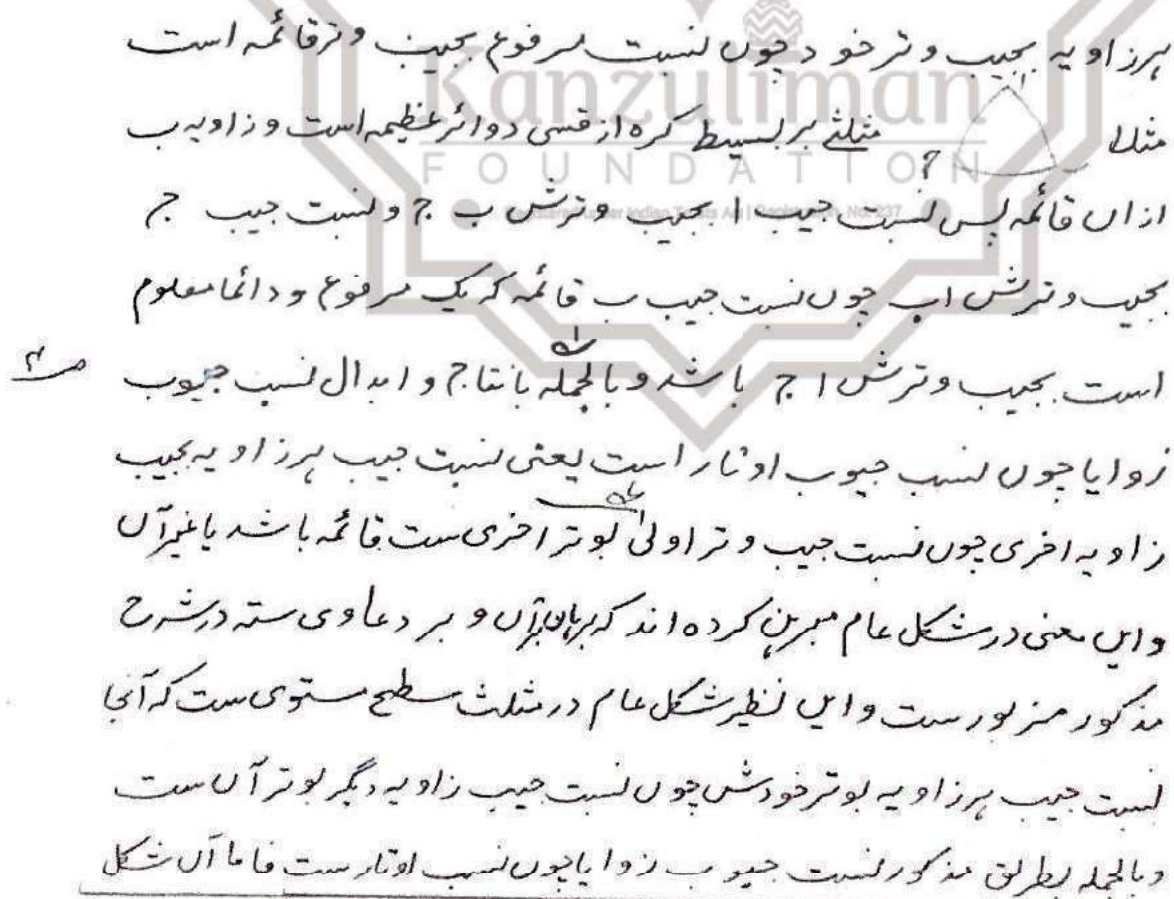 ہرزاویہ بجیب وترخود چوں نسبت مرفوع بجیب وترقائمہ است
Kanzuliman
مثلا ا ج مثلثے بر بسیط کرہ از قسی دوائر عظیمہ است و زاویہ ب
FOUNDATION
ازاں قائمہ پس نسبت جیب ا بجیب وترش ب ج و نسبت جیب ج
بجیب وترش اب چوں نسبت جیب ب قائمہ کہ یک مرفوع و دائما معلوم
است بجیب وترش ا ج باشد و بالجملہ بانتاج و ابدال نسب جیوب
زوایا چوں نسب جیوب اوتار است یعنی نسبت جیب ہرزاویہ بجیب
زاویہ اخری چوں نسبت جیب وتر اولی بوتر اخری ست قائمہ باشد یا غیر آں
وایں معنی درشکل عام مبرہن کردہ اند کہ برہان براں و بر دعاوی ستہ درشرح
مذکور مزبور ست و ایں نظیر شکل عام در مثلث سطح مستوی ست کہ آنجا
نسبت جیب ہرزاویہ بوتر خودش چوں نسبت جیب زاویہ دیگر بوتر آں ست
وبالجملہ بطریق مذکور نسبت جیوب زوایا چوں نسب اوتارست فاما آں شکل